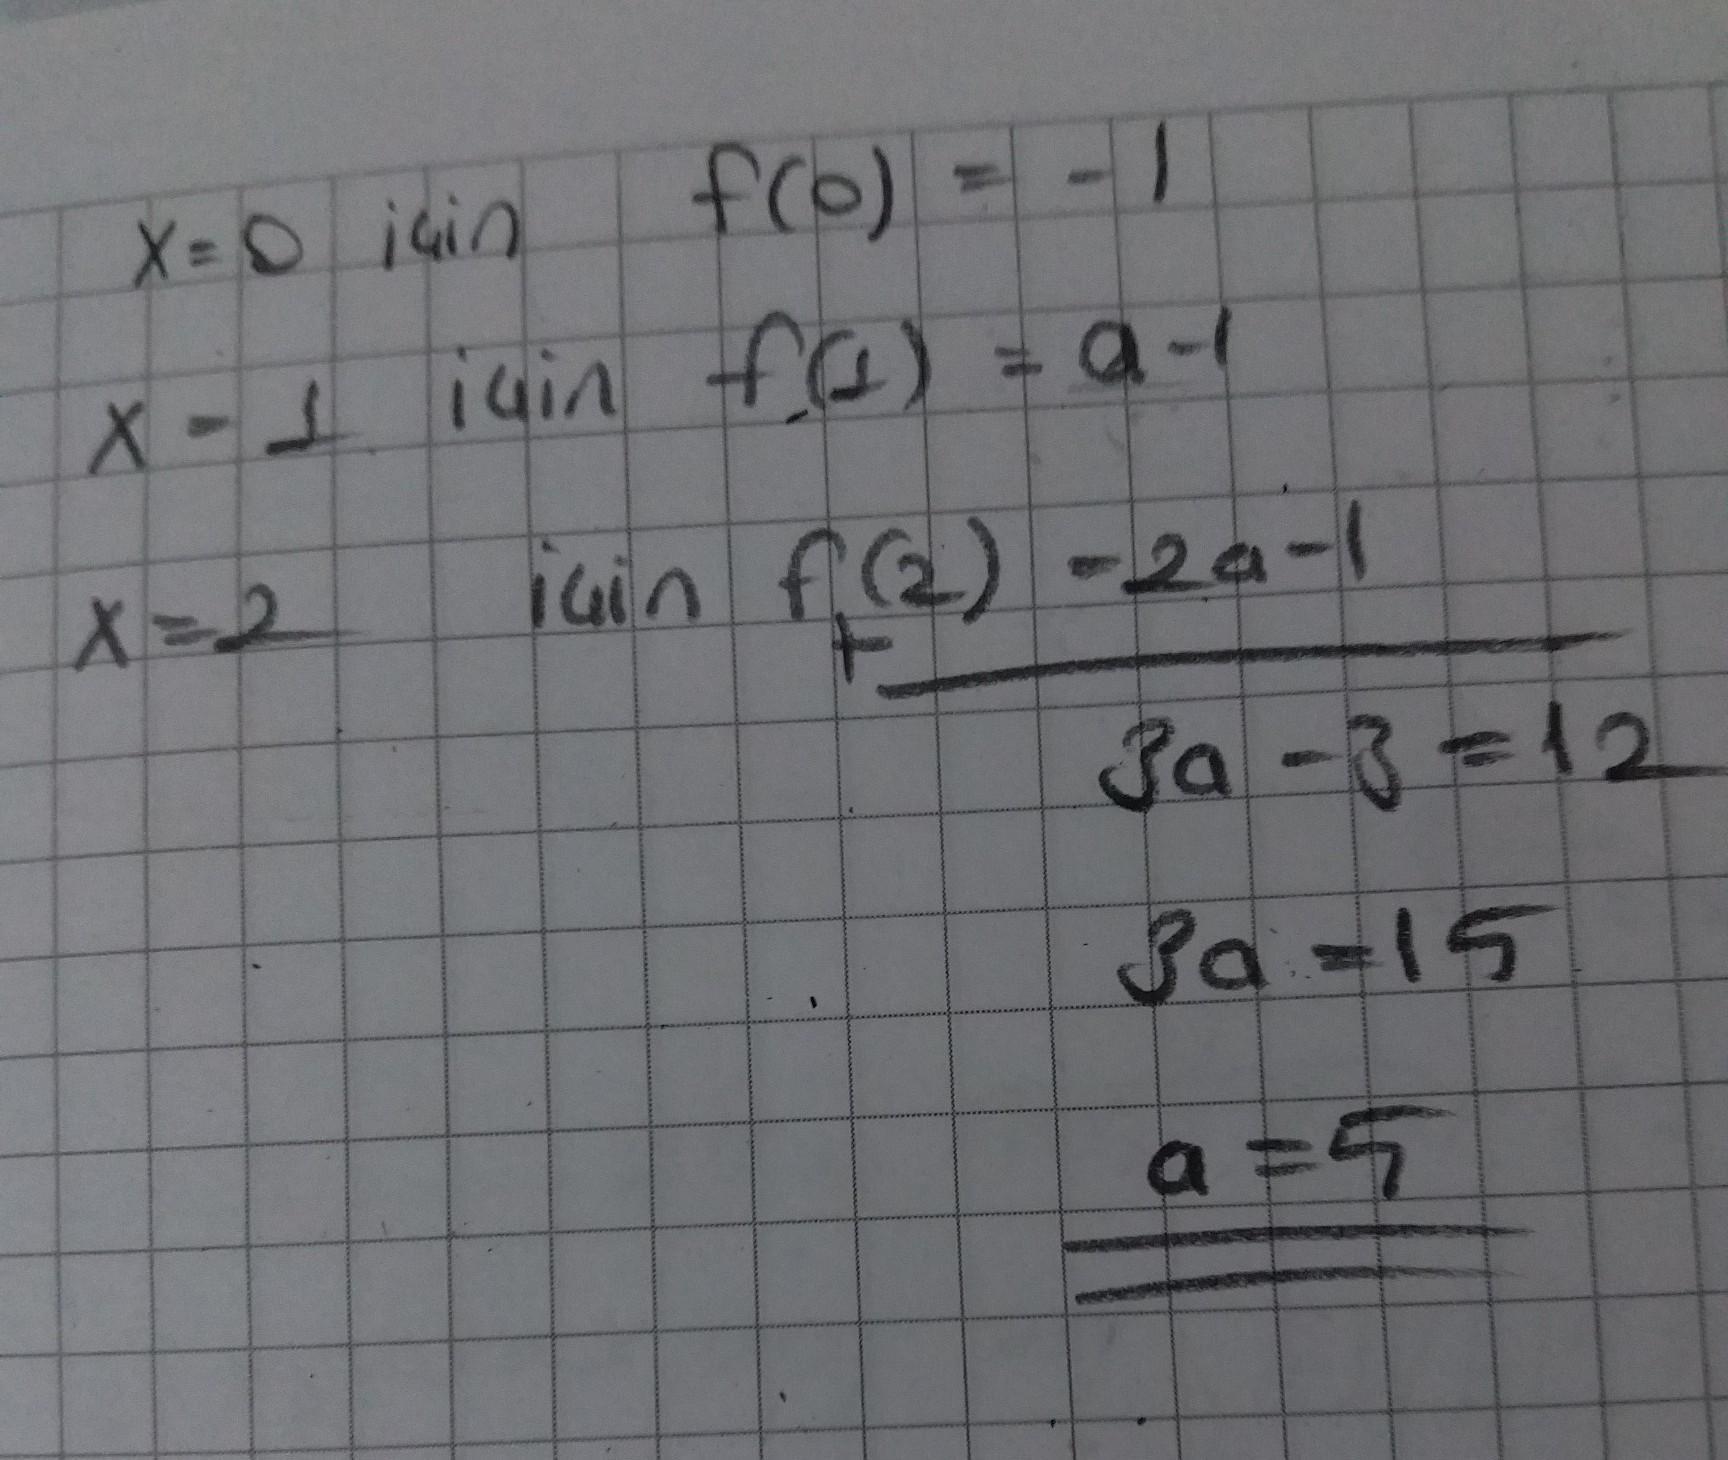 x=0 için f(0) = -1
x=1 için f(1) = a-1
x=2 için f(2) = 2a-1
+
3a-3=12
3a=15
a=5